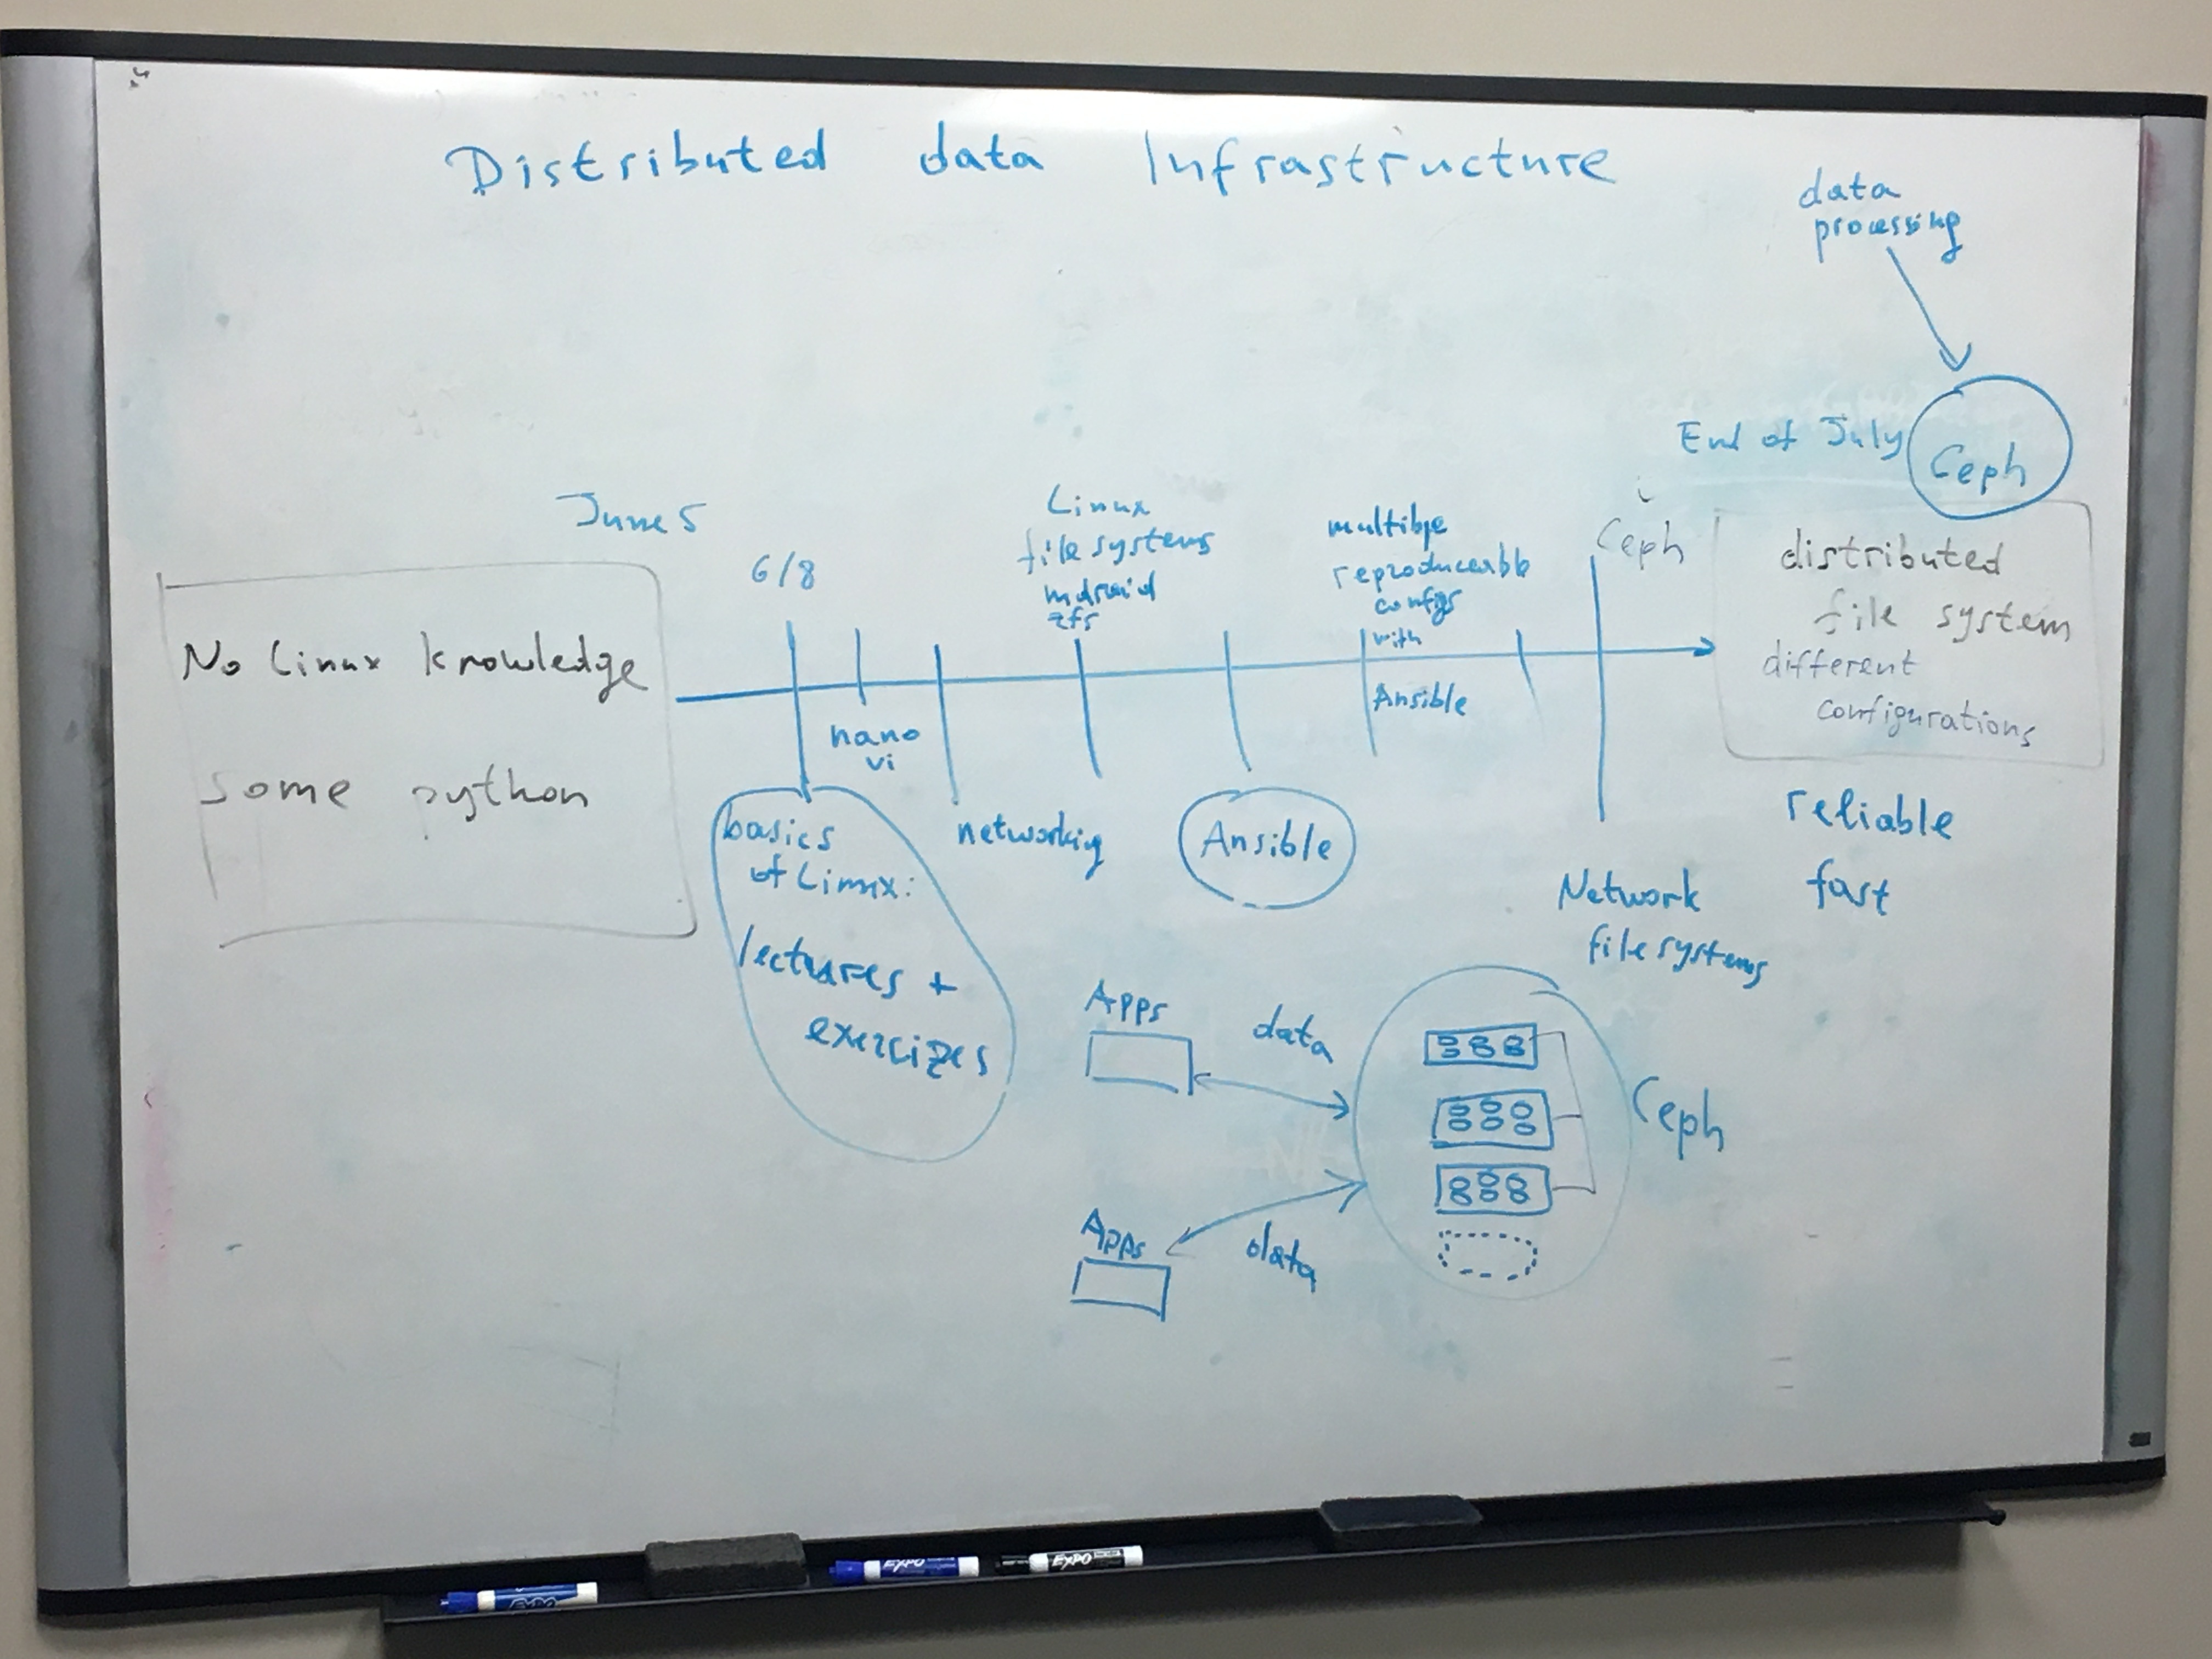 Distributed data Infrastructure
data
processing
End of July
Ceph
June 5
6/8
Linux
file systems
mdraid
zfs
multible
reproduceable
configs
with
Ansible
Ceph
distributed
file system
different
configurations
No Linux knowledge
some python
nano
vi
basics
of Linux:
lectures +
exercizes
networking
Ansible
Network
file systems
reliable
fast
Apps
data
Ceph
Apps
data
EXPO
EXPO
EXPO